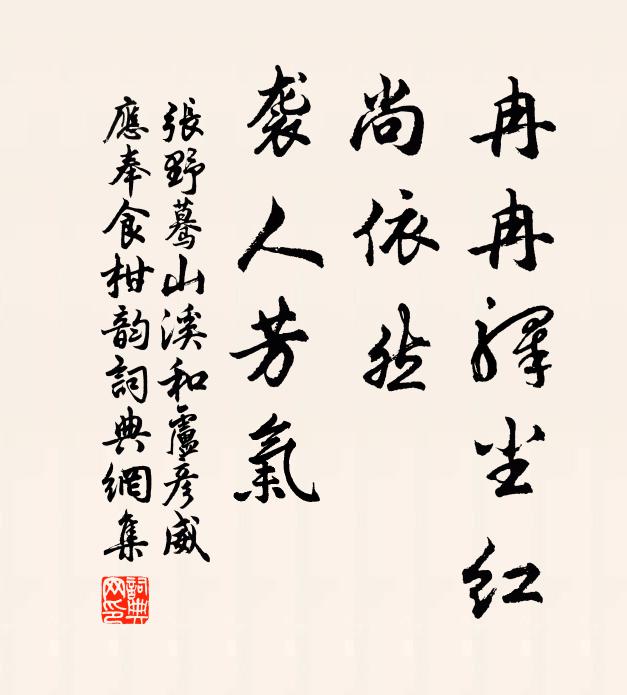 冉冉驛尘红
尚依然
袭人芳氣
張野驀山溪和盧彦威
應奉食柑韵詞典網集
詞典
网印